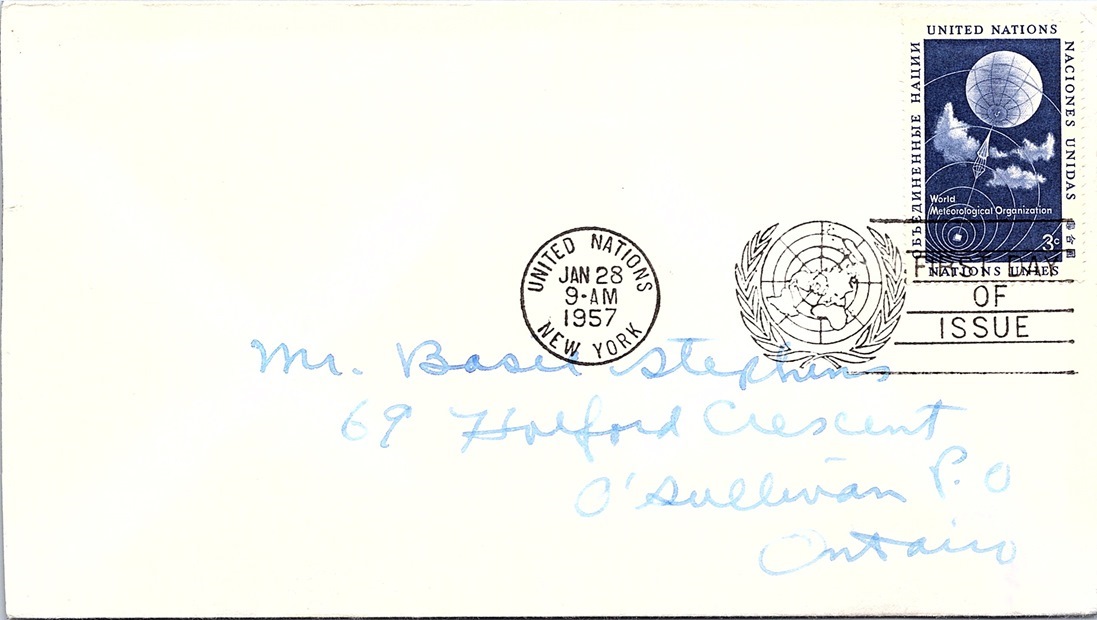 UNITED NATIONS
ОБЪЕДИНЕННЫЕ НАЦИИ
NACIONES UNIDAS
聯合國
World
Meteorological Organization
3c
NATIONS UNIES
UNITED NATIONS
JAN 28
9-AM
1957
NEW YORK
FIRST DAY
OF
ISSUE
Mr. Basil Stephens
69 Holford Crescent
O'Sullivan P.O
Ontairo